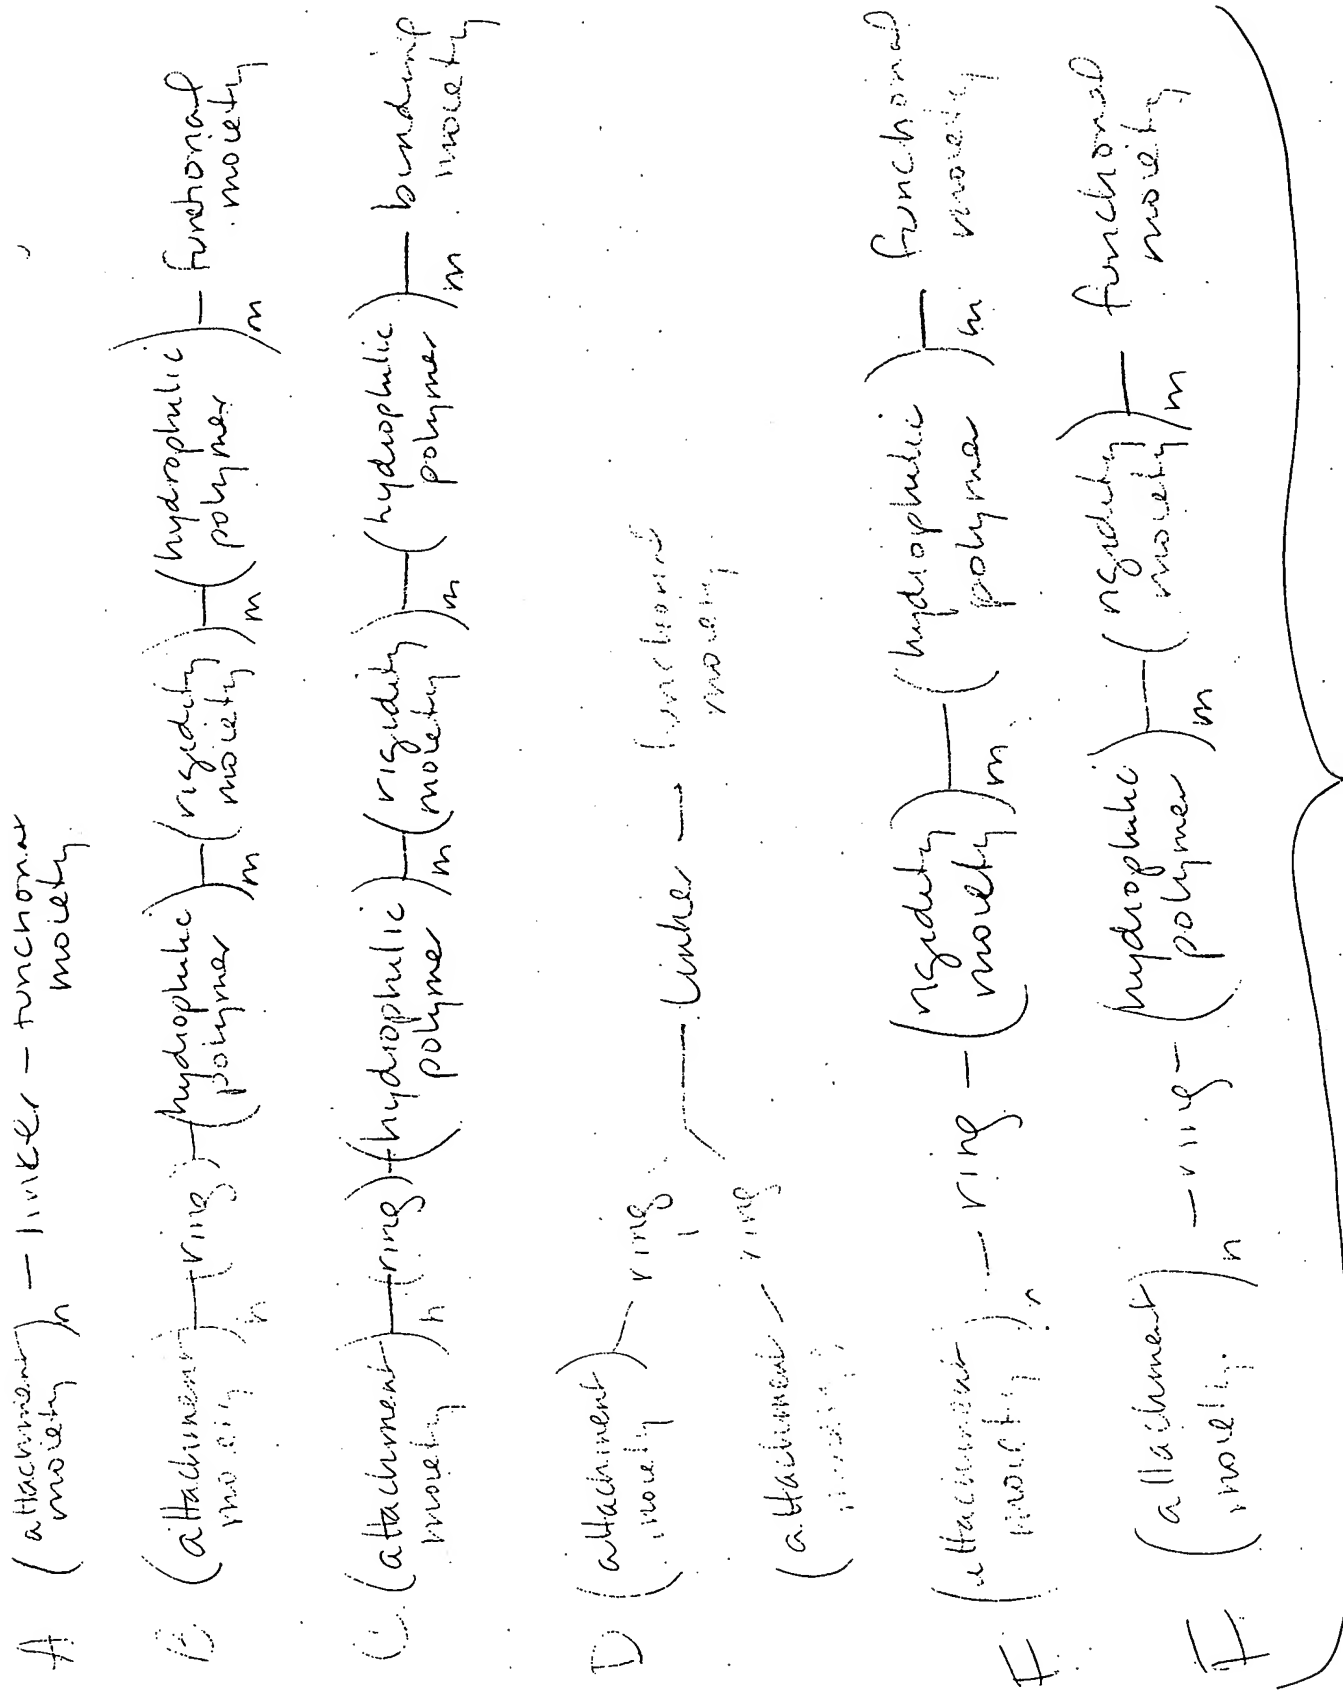 A (attachment moiety)n — linker — functional moiety
B (attachment moiety)n — (ring) — (hydrophilic polymer)m — (rigidity moiety)m — (hydrophilic polymer)m — functional moiety
C (attachment moiety)n — (ring) — (hydrophilic polymer)m — (rigidity moiety)m — (hydrophilic polymer)m — binding moiety
D (attachment moiety) — ring — Linker — functional moiety
(attachment — ring
(attachment moiety)n — ring — (rigidity moiety)m — (hydrophilic polymer)m — functional moiety
F (attachment moiety)n — ring — (hydrophilic polymer)m — (rigidity moiety)m — functional moiety